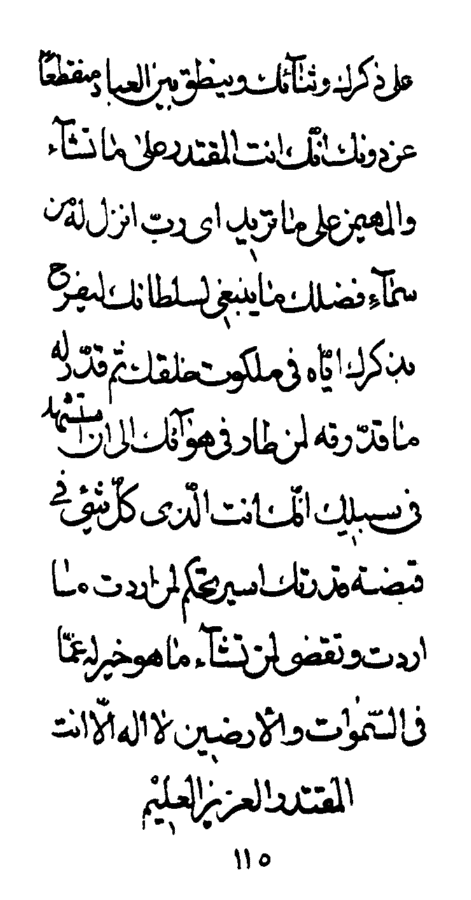 على ذكرك وثنآئك وينطق بين العباد منقطعًا
عن دونك انّك انت المقتدر على ما تشآء
والمهيمن على ما تريد اى ربّ انزل له من
سمآء فضلك ما ينبغى لسلطانك ليفرح
بذكرك ايّاه فى ملكوت خلقك ثمّ قدّر له
ما قدّرته لمن طار فى هوآئك الى ان استشهد
فى سبيلك انّك انت الّذى كلّ شئ فى
قبضة قدرتك اسير تحكم لمن اردت ما
اردت وتقضى لمن تشآء ما هو خير له عمّا
فى السّموات والارضين لا اله الّا انت
المقتدر العزيز العليم
١١٥